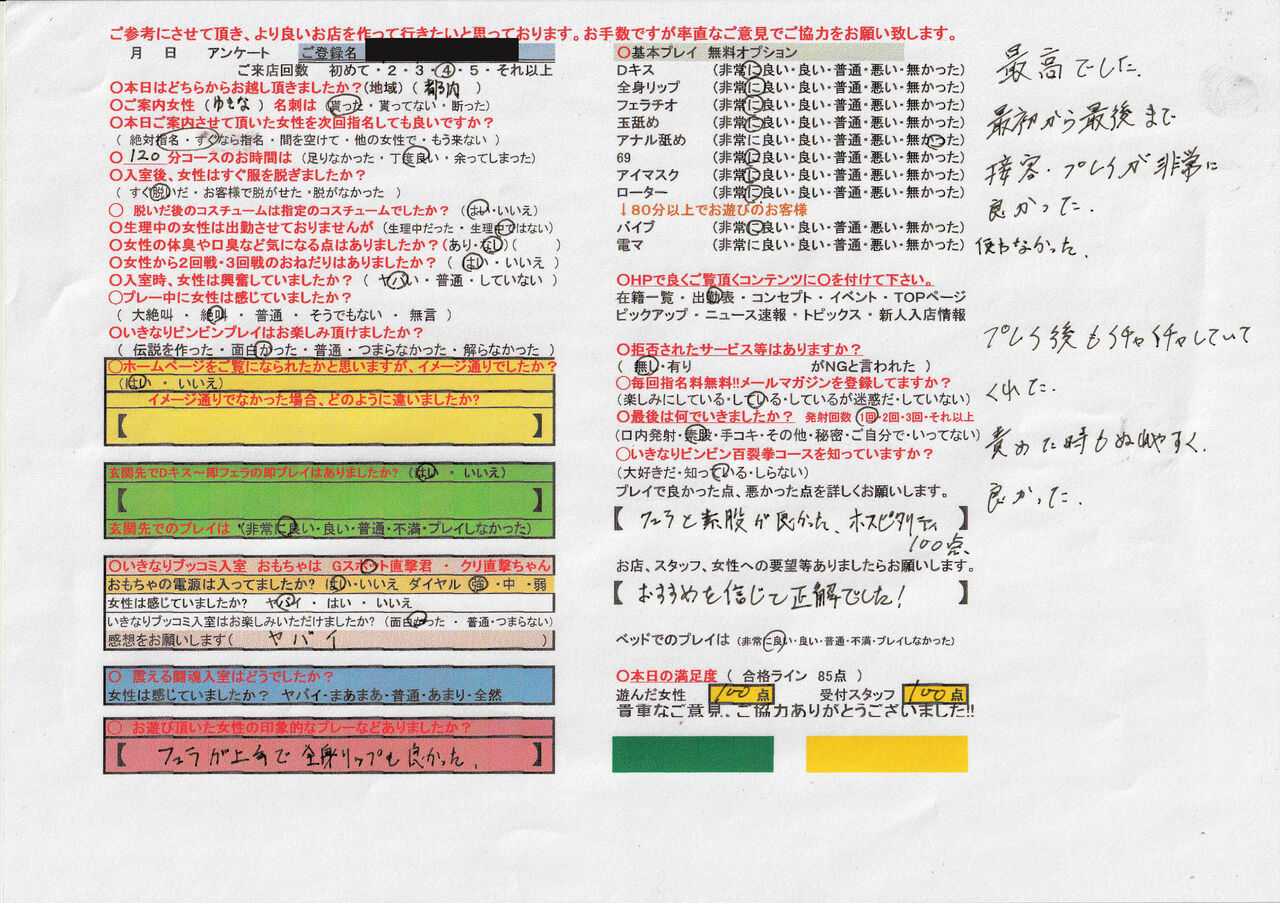 ご参考にさせて頂き、より良いお店を作って行きたいと思っております。お手数ですが率直なご意見でご協力をお願い致します。
月 日 アンケート ご登録名
ご来店回数 初めて・2・3・4・5・それ以上
〇本日はどちらからお越し頂きましたか?(地域) ( 都内 )
〇ご案内女性 (ゆきな) 名刺は (貰った・貰ってない・断った)
〇本日ご案内させて頂いた女性を次回指名しても良いですか?
( 絶対指名・すぐなら指名・間を空けて・他の女性で・もう来ない )
〇 120 分コースのお時間は (足りなかった・丁度良い・余ってしまった)
〇入室後、女性はすぐ服を脱ぎましたか?
(すぐ脱いだ・お客様で脱がせた・脱がなかった )
〇 脱いだ後のコスチュームは指定のコスチュームでしたか? (はい・いいえ)
〇生理中の女性は出勤させておりませんが (生理中だった・生理中ではない)
〇女性の体臭や口臭など気になる点はありましたか?(あり・なし)( )
〇女性から2回戦・3回戦のおねだりはありましたか? (はい・いいえ )
〇入室時、女性は興奮していましたか? ( ヤバい・普通・していない )
〇プレー中に女性は感じていましたか?
( 大絶叫・ 絶叫 ・ 普通 ・ そうでもない ・ 無言 )
〇いきなりビンビンプレイはお楽しみ頂けましたか?
( 伝説を作った・面白かった・普通・つまらなかった・解らなかった )
〇ホームページをご覧になられたかと思いますが、イメージ通りでしたか?
(はい ・ いいえ)
イメージ通りでなかった場合、どのように違いましたか?
【 】
玄関先でDキス～即フェラの即プレイはありましたか? (はい ・ いいえ)
【 】
玄関先でのプレイは (非常に良い・良い・普通・不満・プレイしなかった)
〇いきなりブッコミ入室 おもちゃは Gスポット直撃君 ・ クリ直撃ちゃん
おもちゃの電源は入ってましたか? (はい・いいえ ダイヤル 強・中・弱
女性は感じていましたか? ヤバイ・ はい ・ いいえ
いきなりブッコミ入室はお楽しみいただけましたか? (面白かった ・ 普通・つまらない)
感想をお願いします( ヤバイ )
〇 震える闘魂入室はどうでしたか?
女性は感じていましたか? ヤバイ・まあまあ・普通・あまり・全然
〇 お遊び頂いた女性の印象的なプレーなどありましたか?
【 フェラが上手で全身リップも良かった. 】
〇基本プレイ 無料オプション
Dキス (非常に良い・良い・普通・悪い・無かった)
全身リップ (非常に良い・良い・普通・悪い・無かった)
フェラチオ (非常に良い・良い・普通・悪い・無かった)
玉舐め (非常に良い・良い・普通・悪い・無かった)
アナル舐め (非常に良い・良い・普通・悪い・無かった)
69 (非常に良い・良い・普通・悪い・無かった)
アイマスク (非常に良い・良い・普通・悪い・無かった)
ローター (非常に良い・良い・普通・悪い・無かった)
↓80分以上でお遊びのお客様
バイブ (非常に良い・良い・普通・悪い・無かった)
電マ (非常に良い・良い・普通・悪い・無かった) 使わなかった.
〇HPで良くご覧頂くコンテンツに〇を付けて下さい。
在籍一覧・出勤表・コンセプト・イベント・TOPページ
ピックアップ・ニュース速報・トピックス・新人入店情報
〇拒否されたサービス等はありますか?
( 無し・有り がNGと言われた )
〇毎回指名料無料!!メールマガジンを登録してますか?
(楽しみにしている・している・しているが迷惑だ・していない)
〇最後は何でいきましたか? 発射回数 (1回・2回・3回・それ以上
(口内発射・素股・手コキ・その他・秘密・ご自分で・いってない)
〇いきなりビンビン百裂拳コースを知っていますか?
(大好きだ・知っている・しらない)
プレイで良かった点、悪かった点を詳しくお願いします。
【 フェラと素股が良かった、ホスピタリティ 】
100点
お店、スタッフ、女性への要望等ありましたらお願いします。
【 おすすめを信じて正解でした! 】
ベッドでのプレイは (非常に良い・良い・普通・不満・プレイしなかった)
〇本日の満足度 ( 合格ライン 85点 )
遊んだ女性 100点 受付スタッフ 100点
貴重なご意見、ご協力ありがとうございました!!
最高でした.
最初から最後まで
接客・プレイが非常に
良かった.
プレイ後もイチャイチャしていて
くれた.
責めた時もぬれやすく.
良かった.